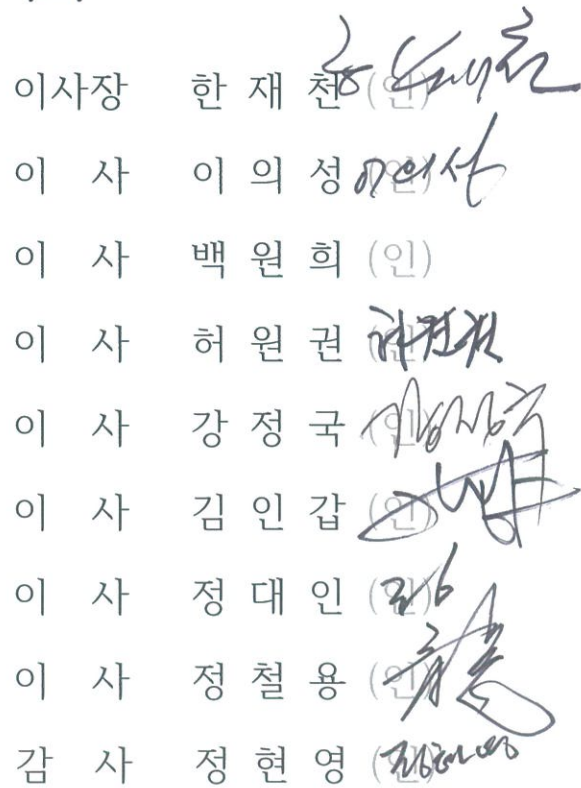 이사장 한 재 천 (인)
이 사 이 의 성 (인) 이의성
이 사 백 원 희 (인)
이 사 허 원 권 (인) 허원권
이 사 강 정 국 (인)
이 사 김 인 갑 (인)
이 사 정 대 인 (인)
이 사 정 철 용 (인)
감 사 정 현 영 (인) 정현영